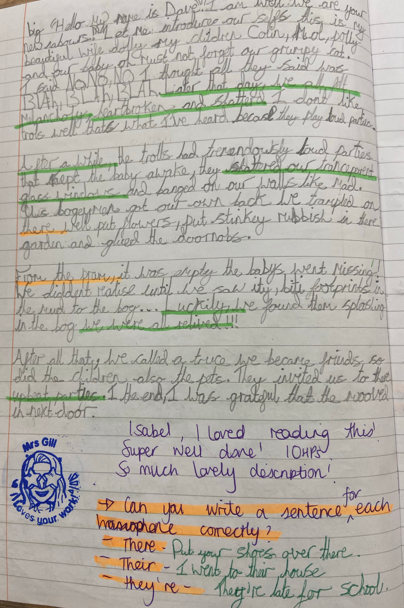 big "Hello my name is Dave" I am well we are your
new naburs. let me introduce our selfs this is my
beautiful wife dolly my children Colin, dot, polly
and our baby oh must not forget our grumpy cat.
I said NO, NO, NO I thought all they said was
BLAH, BLAH, BLAH. Later that day, we all felt
heartbroken and I don't like
trols well thats what I've heard becase they play loud parties.
After a while, the trolls had tremendously loud parties
that kept the baby awake, they shattered our
glass windows and banged on our walls like mad.
Us bogeyman got our own back we trampled on
there well put flowers, put stinkey rubbish in there
garden and glued the doornobs.
From the pram, it was empty the babys went missing!
We diddent realise until we saw ity bity footprints in
the mud to the bog... Luckily, we found them splashing
in the bog we were all relived!!!
After all that, we called a truce we became friends, so
did the children also the pets. They invited us to there
upbeat parties. I the end, I was grateful that the mooved
in next door.
Isabel, I loved reading this!
Super well done! 10HPs
So much lovely description!
Mrs Gill
loves your work!
→ Can you write a sentence for each
homophone correctly?
- There - Put your shoes over there.
- Their - I went to their house
- they're - They're late for school.